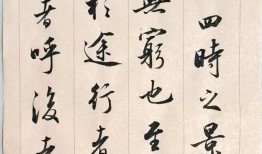 四時之景
無窮也至
於途行者
者呼後者